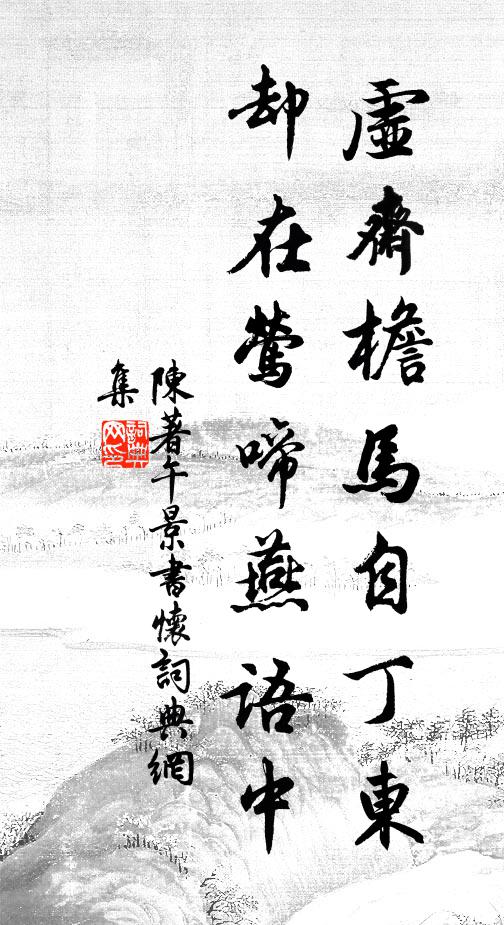 虛齋檐馬自丁東
却在鶯啼燕語中
陳著午景書懷詞典網
集